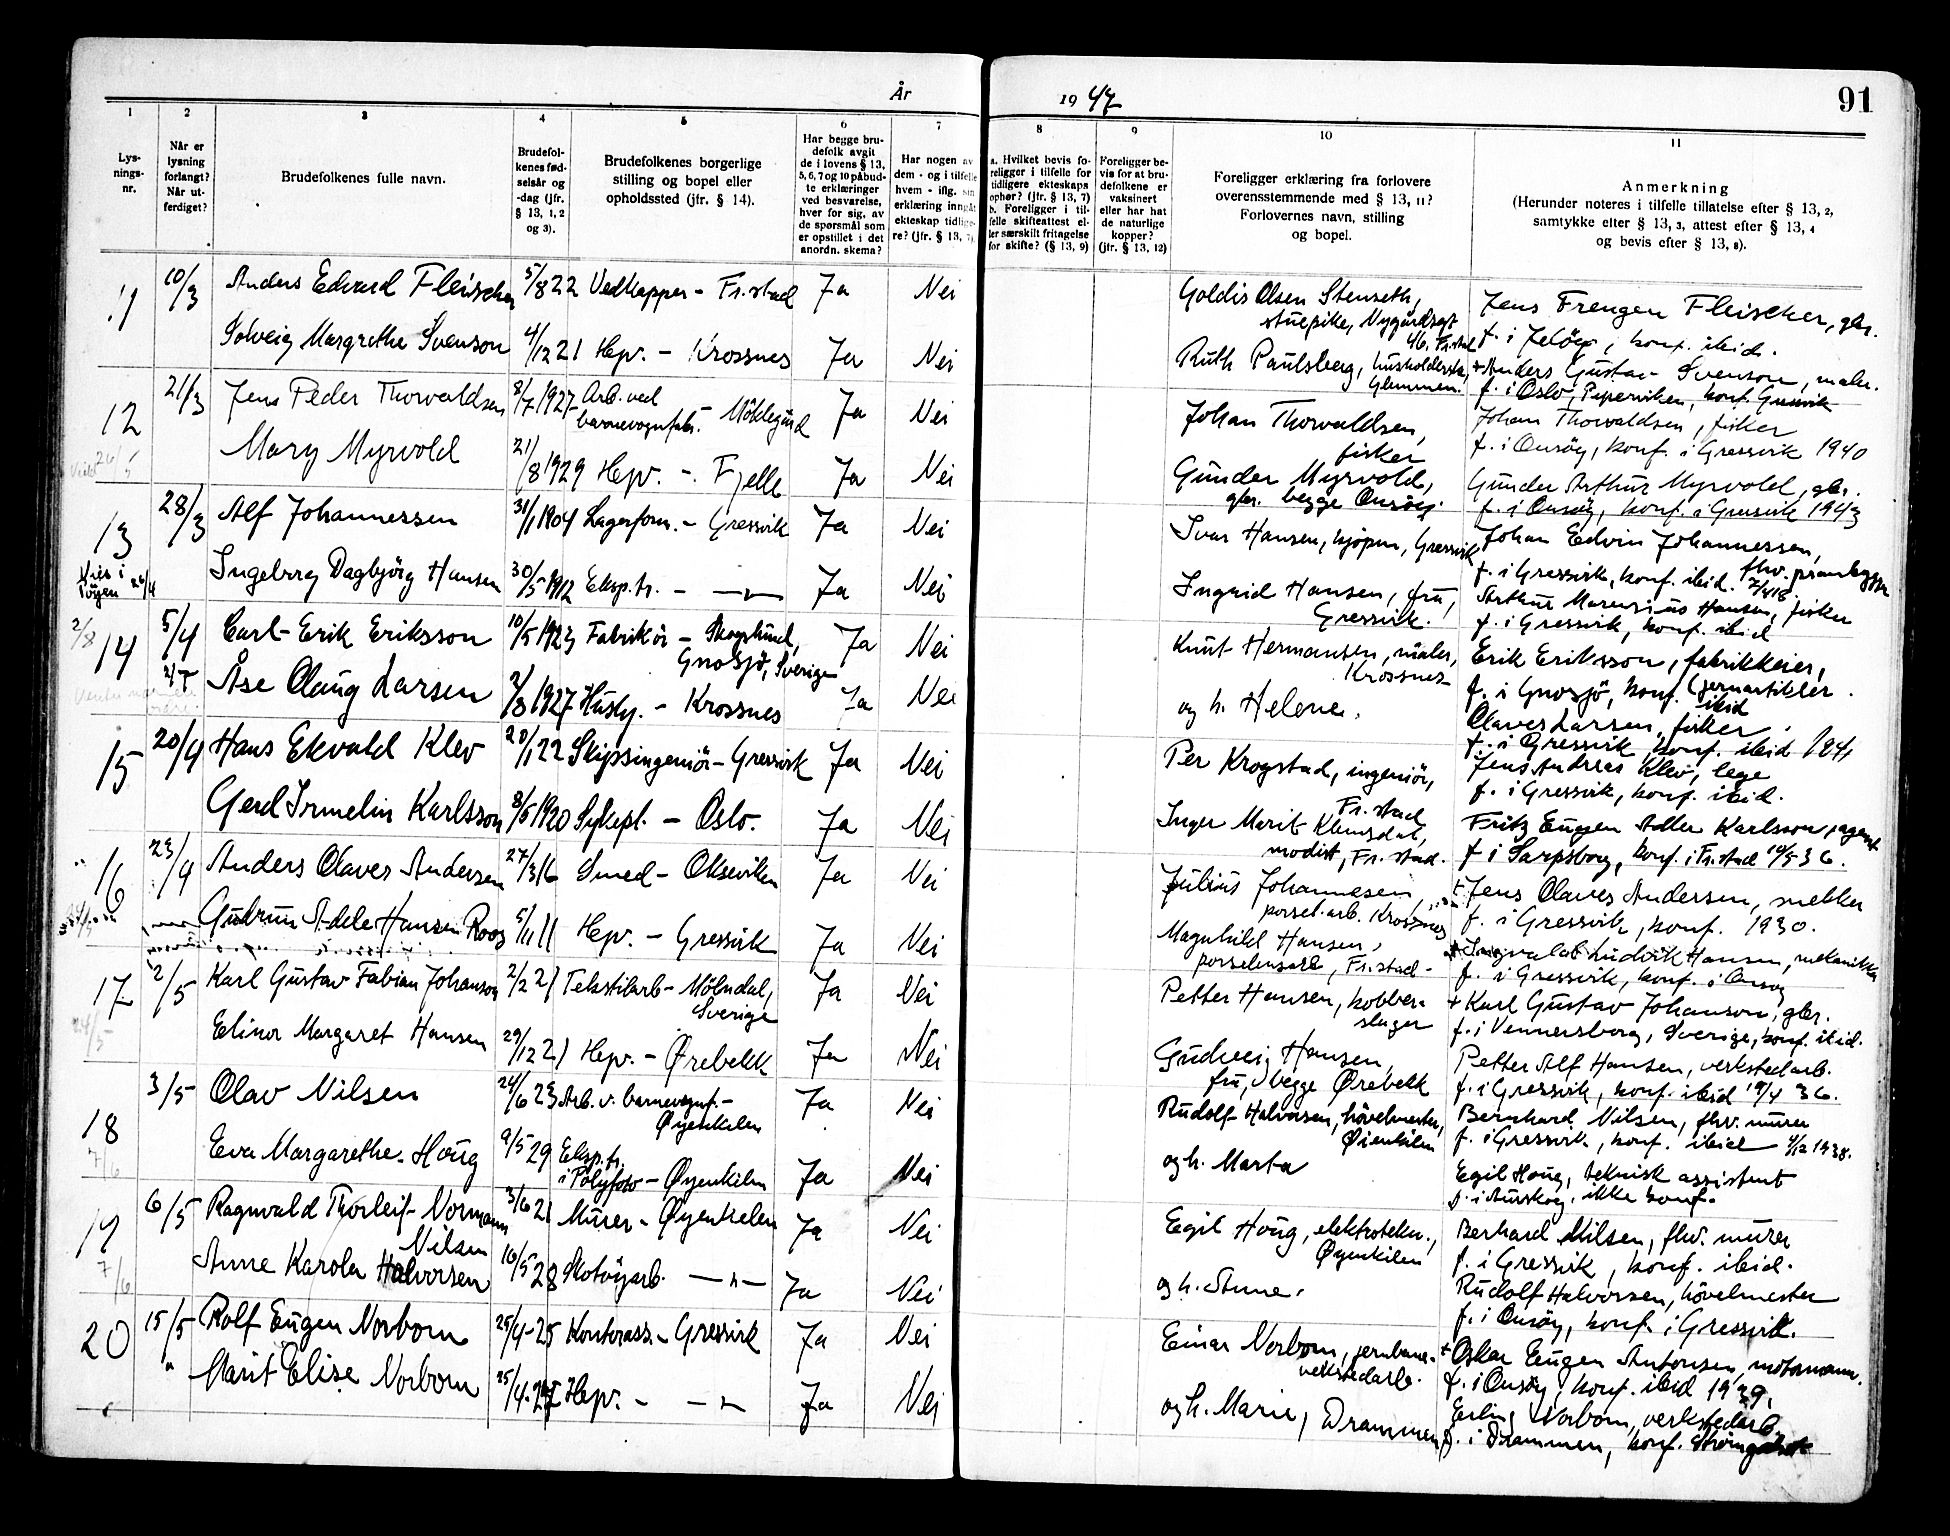 År 1947
91
1
Lys-
nings-
nr.
2
Når er
lysning
forlangt?
Når ut-
ferdiget?
3
Brudefolkenes fulle navn.
4
Brudefol-
kenes fød-
selsår og
-dag (jfr.
§ 13, 1, 2
og 3).
5
Brudefolkenes borgerlige
stilling og bopel eller
opholdssted (jfr. § 14).
6
Har begge bru-
defolk avgit
de i lovens § 13,
5, 6, 7 og 10 påbud-
te erklæringer
ved besvarelse,
hver for sig, av
de spørsmål som
er opstillet i det
anordn. skema?
7
Har nogen av
dem - og i tilfelle
hvem - iflg. sin
erklæring inngåt
ekteskap tidlige-
re? (jfr. § 13, 7)
8
a. Hvilket bevis fo-
religger i tilfelle for
tidligere ekteskaps
ophør? (jfr. § 13, 7)
b. Foreligger i til-
felle skifteattest el-
ler særskilt fritagelse
for skifte? (§ 13, 9)
9
Foreligger be-
vis for at bru-
defolkene er
vaksinert
eller har hat
de naturlige
kopper?
(jfr. § 13, 12)
10
Foreligger erklæring fra forlovere
overensstemmende med § 13, 11?
Forlovernes navn, stilling
og bopel.
11
Anmerkning
(Herunder noteres i tilfelle tillatelse efter § 13, 2,
samtykke efter § 13, 3, attest efter § 13, 4
og bevis efter § 13, 8).
11 10/3 Anders Edvard Fleischer 5/8 22 Vedkapper - Fr.stad Ja Nei
Solveig Margrethe Svenson 4/12 21 Hepv. - Krossnes Ja Nei
Goldis Olsen Stenseth,
stuepike, Nygårdsgt
46. Fr.stad
Ruth Paulsberg, husholderske,
Glemmen.
Jens Frengen Fleischer, gbr.
f. i Jeløy, konf. ibid.
+ Anders Gustav Svenson, maler.
f. i Oslo, Piperviken, konf. Gressvik
12 21/3 Jens Peder Thorvaldsen 8/7 1927 Arb. ved
barnevognfabr. Möklegård Ja Nei
Mary Myrvold 21/8 1929 Hepv. - Fjelle Ja Nei
26/5
Johan Thorvaldsen,
fisker
Gunder Myrvold,
gbr. begge Onsöy.
Johan Thorvaldsen, fisker
f. i Onsöy, konf. i Gressvik 1940
Gunder Arthur Myrvold, gbr.
f. i Onsöy, konf. i Gressvik 1943
13 28/3 Alf Johannessen 31/1 1904 Lagerform. - Gressvik Ja Nei
Ingeborg Dagbjörg Hansen 30/5 1912 Eksp.tr. - — " — Ja Nei
Vies i
Töyen 26/4
Ivar Hansen, kjöpm, Gressvik
Ingrid Hansen, fru,
Gressvik.
Johan Edvin Johannessen,
fhv. prambygger
f. i Gressvik, konf. ibid. 7/4 18.
Arthur Marensius Hansen, fisker
f. i Gressvik, konf. ibid
14 5/4 Carl-Erik Eriksson 10/5 1923 Fabrikör - Skogslund,
Gnosjö, Sverige Ja Nei
2/8
Åse Olaug Larsen 2/8 1927 Hush. - Krossnes Ja Nei
Knut Hermansen, maler,
Krossnes
og h. Helene.
Erik Eriksson, fabrikkeier,
(jernartikler
f. i Gnosjö, konf. ibid
Olaves Larsen, fisker
f. i Gressvik, konf. ibid 1941
15 20/4 Hans Ekvald Klev 28/1 22 Skipsingeniör - Gressvik Ja Nei
Gerd Irmelin Karlsson 8/5 1920 Sykepl. - Oslo. Ja Nei
Per Krogstad, ingeniör,
Fr.stad
Inger Marit Klemsdal,
modist, Fr.stad.
Jens Andreas Klev, lege
f. i Gressvik, konf. ibid.
Fritz Eugen Adler Karlsson, agent
f. i Sarpsborg, konf. i Fr.stad 10/5 36.
16 23/4 Anders Olaves Andersen 27/3 16 Smed - Okseviken Ja Nei
Gudrun Adele Hansen Roos 5/11 11 Hepv. - Gressvik Ja Nei
Julius Johannesen,
porsel.arb. Krossnes
Magnhild Hansen,
porselensarb, Fr.stad -
+ Jens Olaves Andersen, snekker
f. i Gressvik, konf. 1930.
+ Ingvald Ludvik Hansen, mekaniker
f. i Gressvik, konf. i Onsøy
17 2/5 Karl Gustav Fabian Johanson 2/2 21 Tekstilarb - Mölndal,
Sverige Ja Nei
24/5
Elinor Margaret Hansen 29/12 21 Hepv. - Ørebekk Ja Nei
Petter Hansen, kobber-
slager
Gudveig Hansen,
fru, begge Ørebekk
+ Karl Gustav Johanson, gbr.
f. i Vennersborg, Sverige, konf. ibid.
Petter Alf Hansen, verkstedarb.
f. i Gressvik, konf. ibid 19/4 36.
18 3/5 Olav Nilsen 24/6 23 Arb. v. barnevognf. -
Øyenkilen Ja Nei
7/6
Eva Margarethe Houg 9/5 29 Eksp.tr.
i Polyfoto - Øyenkilen Ja Nei
Rudolf Halvorsen, hövelmester,
Øienkilen
og h. Marta
Bernhard Nilsen, fhv. murer
f. i Gressvik, konf. ibid 4/12 1938.
Egil Houg, teknisk assistent
f. i Aurskog, ikke konf.
19 6/5 Ragnvald Thorleif Normann
Nilsen 3/6 21 Murer - Øyenkilen Ja Nei
7/6
Anne Karola Halvorsen 10/5 28 Skotöyarb. — " — Ja Nei
Egil Houg, elektrotekn.,
Øyenkilen
og h. Anne.
Berhard Nilsen, fhv. murer
f. i Gressvik, konf. ibid.
Rudolf Halvorsen, hövelmester
f. i Onsöy, konf. i Gressvik.
20 15/5 Rolf Eugen Norbom 25/4-25 Kontorass. - Gressvik Ja Nei
" Marit Elise Norbom 25/4-27 Hepv. - — " — Ja Nei
Einar Norbom, jernbane-
verkstedarb.
og h. Marie, Drammen
+ Oskar Eugen Antonsen, motormann.
f. i Onsöy, konf. ibid 1939.
Erling Norbom, verkstedarb.
f. i Drammen, konf. Strömgodset